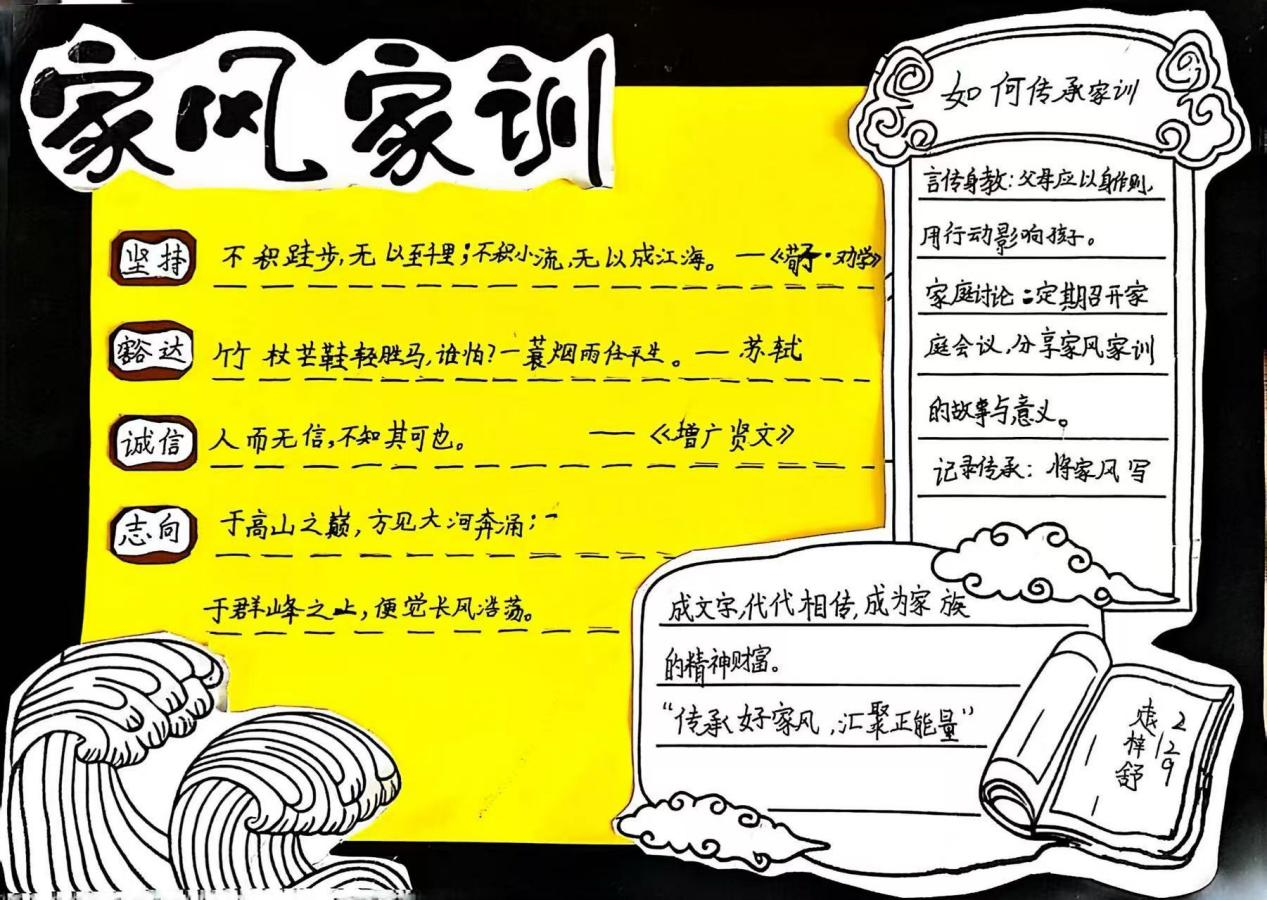 家风家训
坚持
不积跬步,无以至千里;不积小流,无以成江海。—《荀子·劝学》
豁达
竹杖芒鞋轻胜马,谁怕?一蓑烟雨任平生。—苏轼
诚信
人而无信,不知其可也。——《增广贤文》
志向
于高山之巅,方见大河奔涌;
于群峰之上,便觉长风浩荡。
如何传承家训
言传身教:父母应以身作则,
用行动影响孩子。
家庭讨论:定期召开家
庭会议,分享家风家训
的故事与意义。
记录传承:将家风写
成文字,代代相传,成为家族
的精神财富。
“传承好家风,汇聚正能量”
梓舒
2129